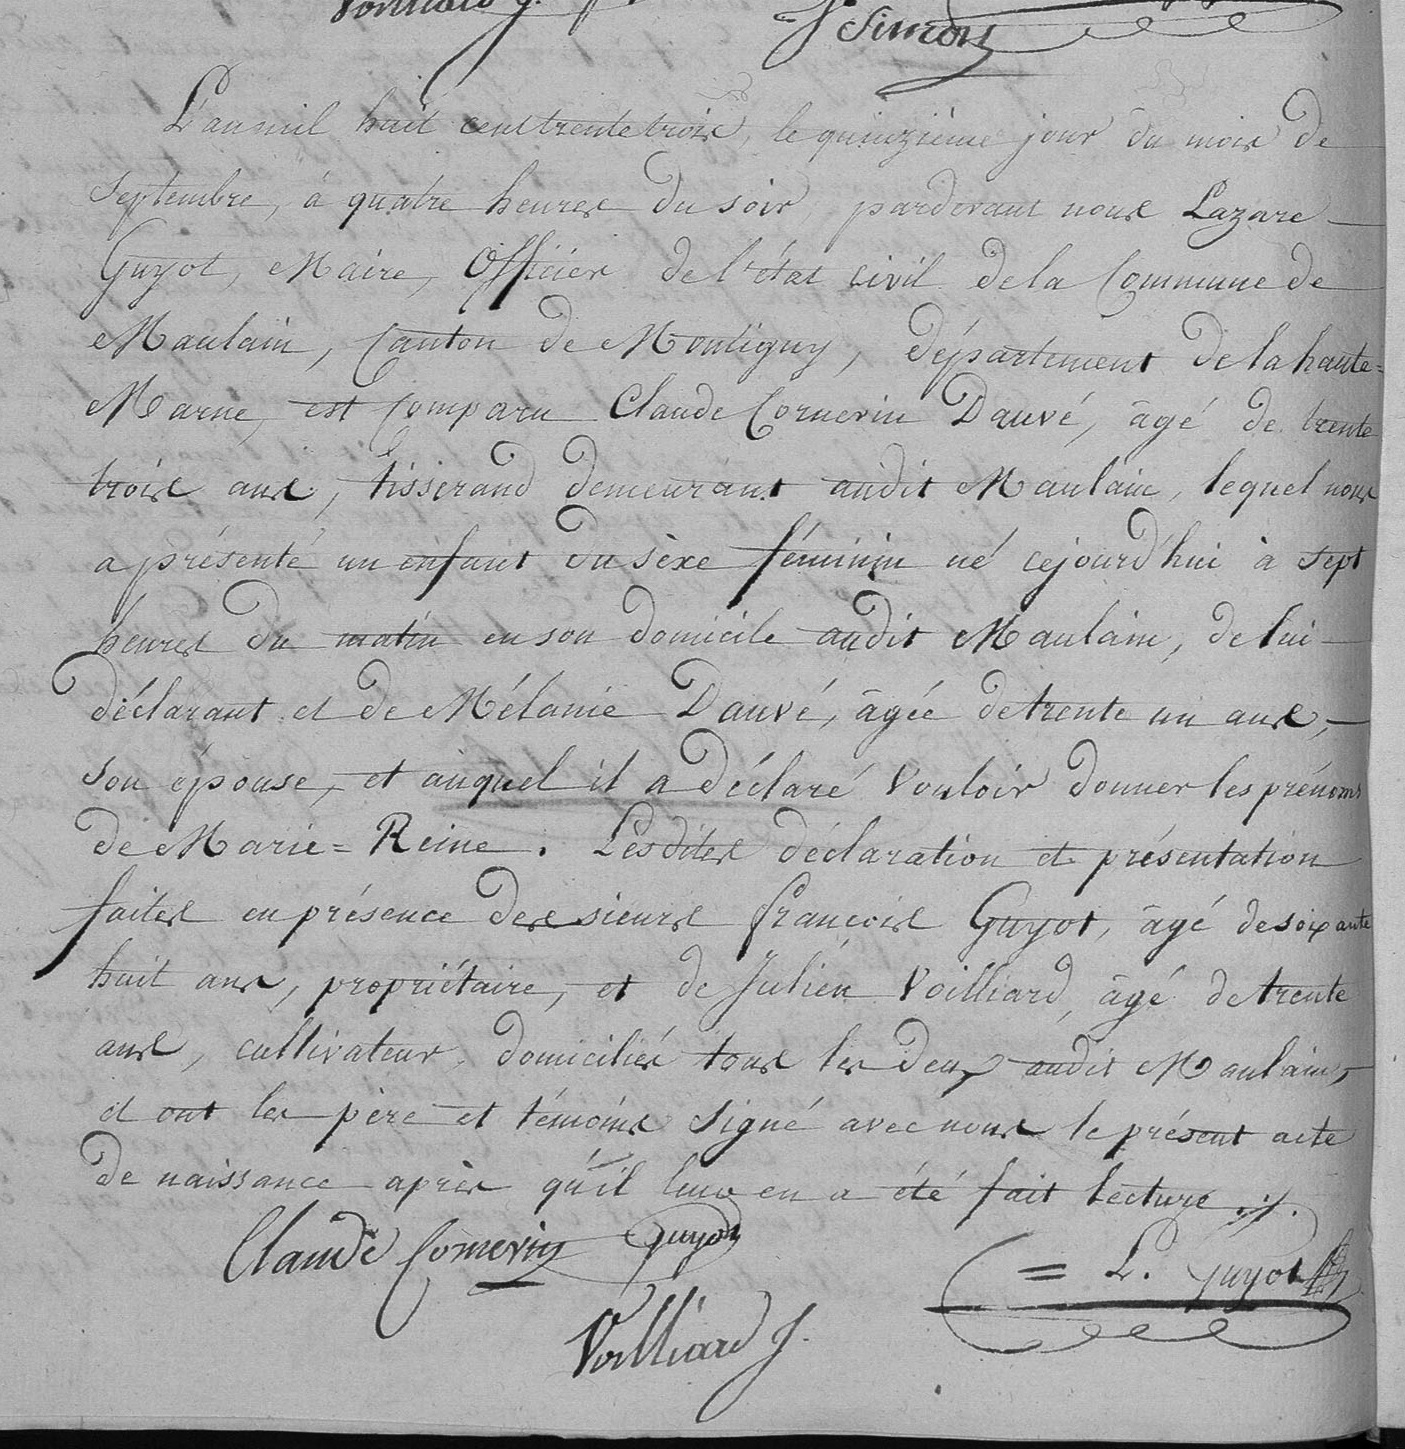 Voilliard J.
J Simon
L'an mil huit cent trente trois, le quinzième jour du mois de
septembre, à quatre heures du soir, pardevant nous Lazare
Guyot, Maire, Officier de l'état civil de la Commune de
Maulain, Canton de Montigny, département de la haute=
Marne, est Comparu Claude Cornevin Dauvé, âgé de trente
trois ans, tisserand demeurant audit Maulain, lequel nous
a présenté un enfant du sèxe féminin né cejourd'hui à sept
heures du matin en son domicile audit Maulain, de lui
déclarant et de Mélanie Dauvé, âgée de trente un ans,
son épouse, et auquel il a déclaré vouloir donner les prénoms
de Marie=Reine. Lesdites déclaration et présentation
faites en présence des sieurs françois Guyot, âgé de soixante
huit ans, propriétaire, et de Julien Voilliard, âgé de trente
ans, cultivateur, domiciliés tous les deux audit Maulain,
et ont les père et témoins signé avec nous le présent acte
de naissance après qu'il leur en a été fait lecture ./.
Claude Cornevin Guyot
= L. Guyot
Voilliard J.